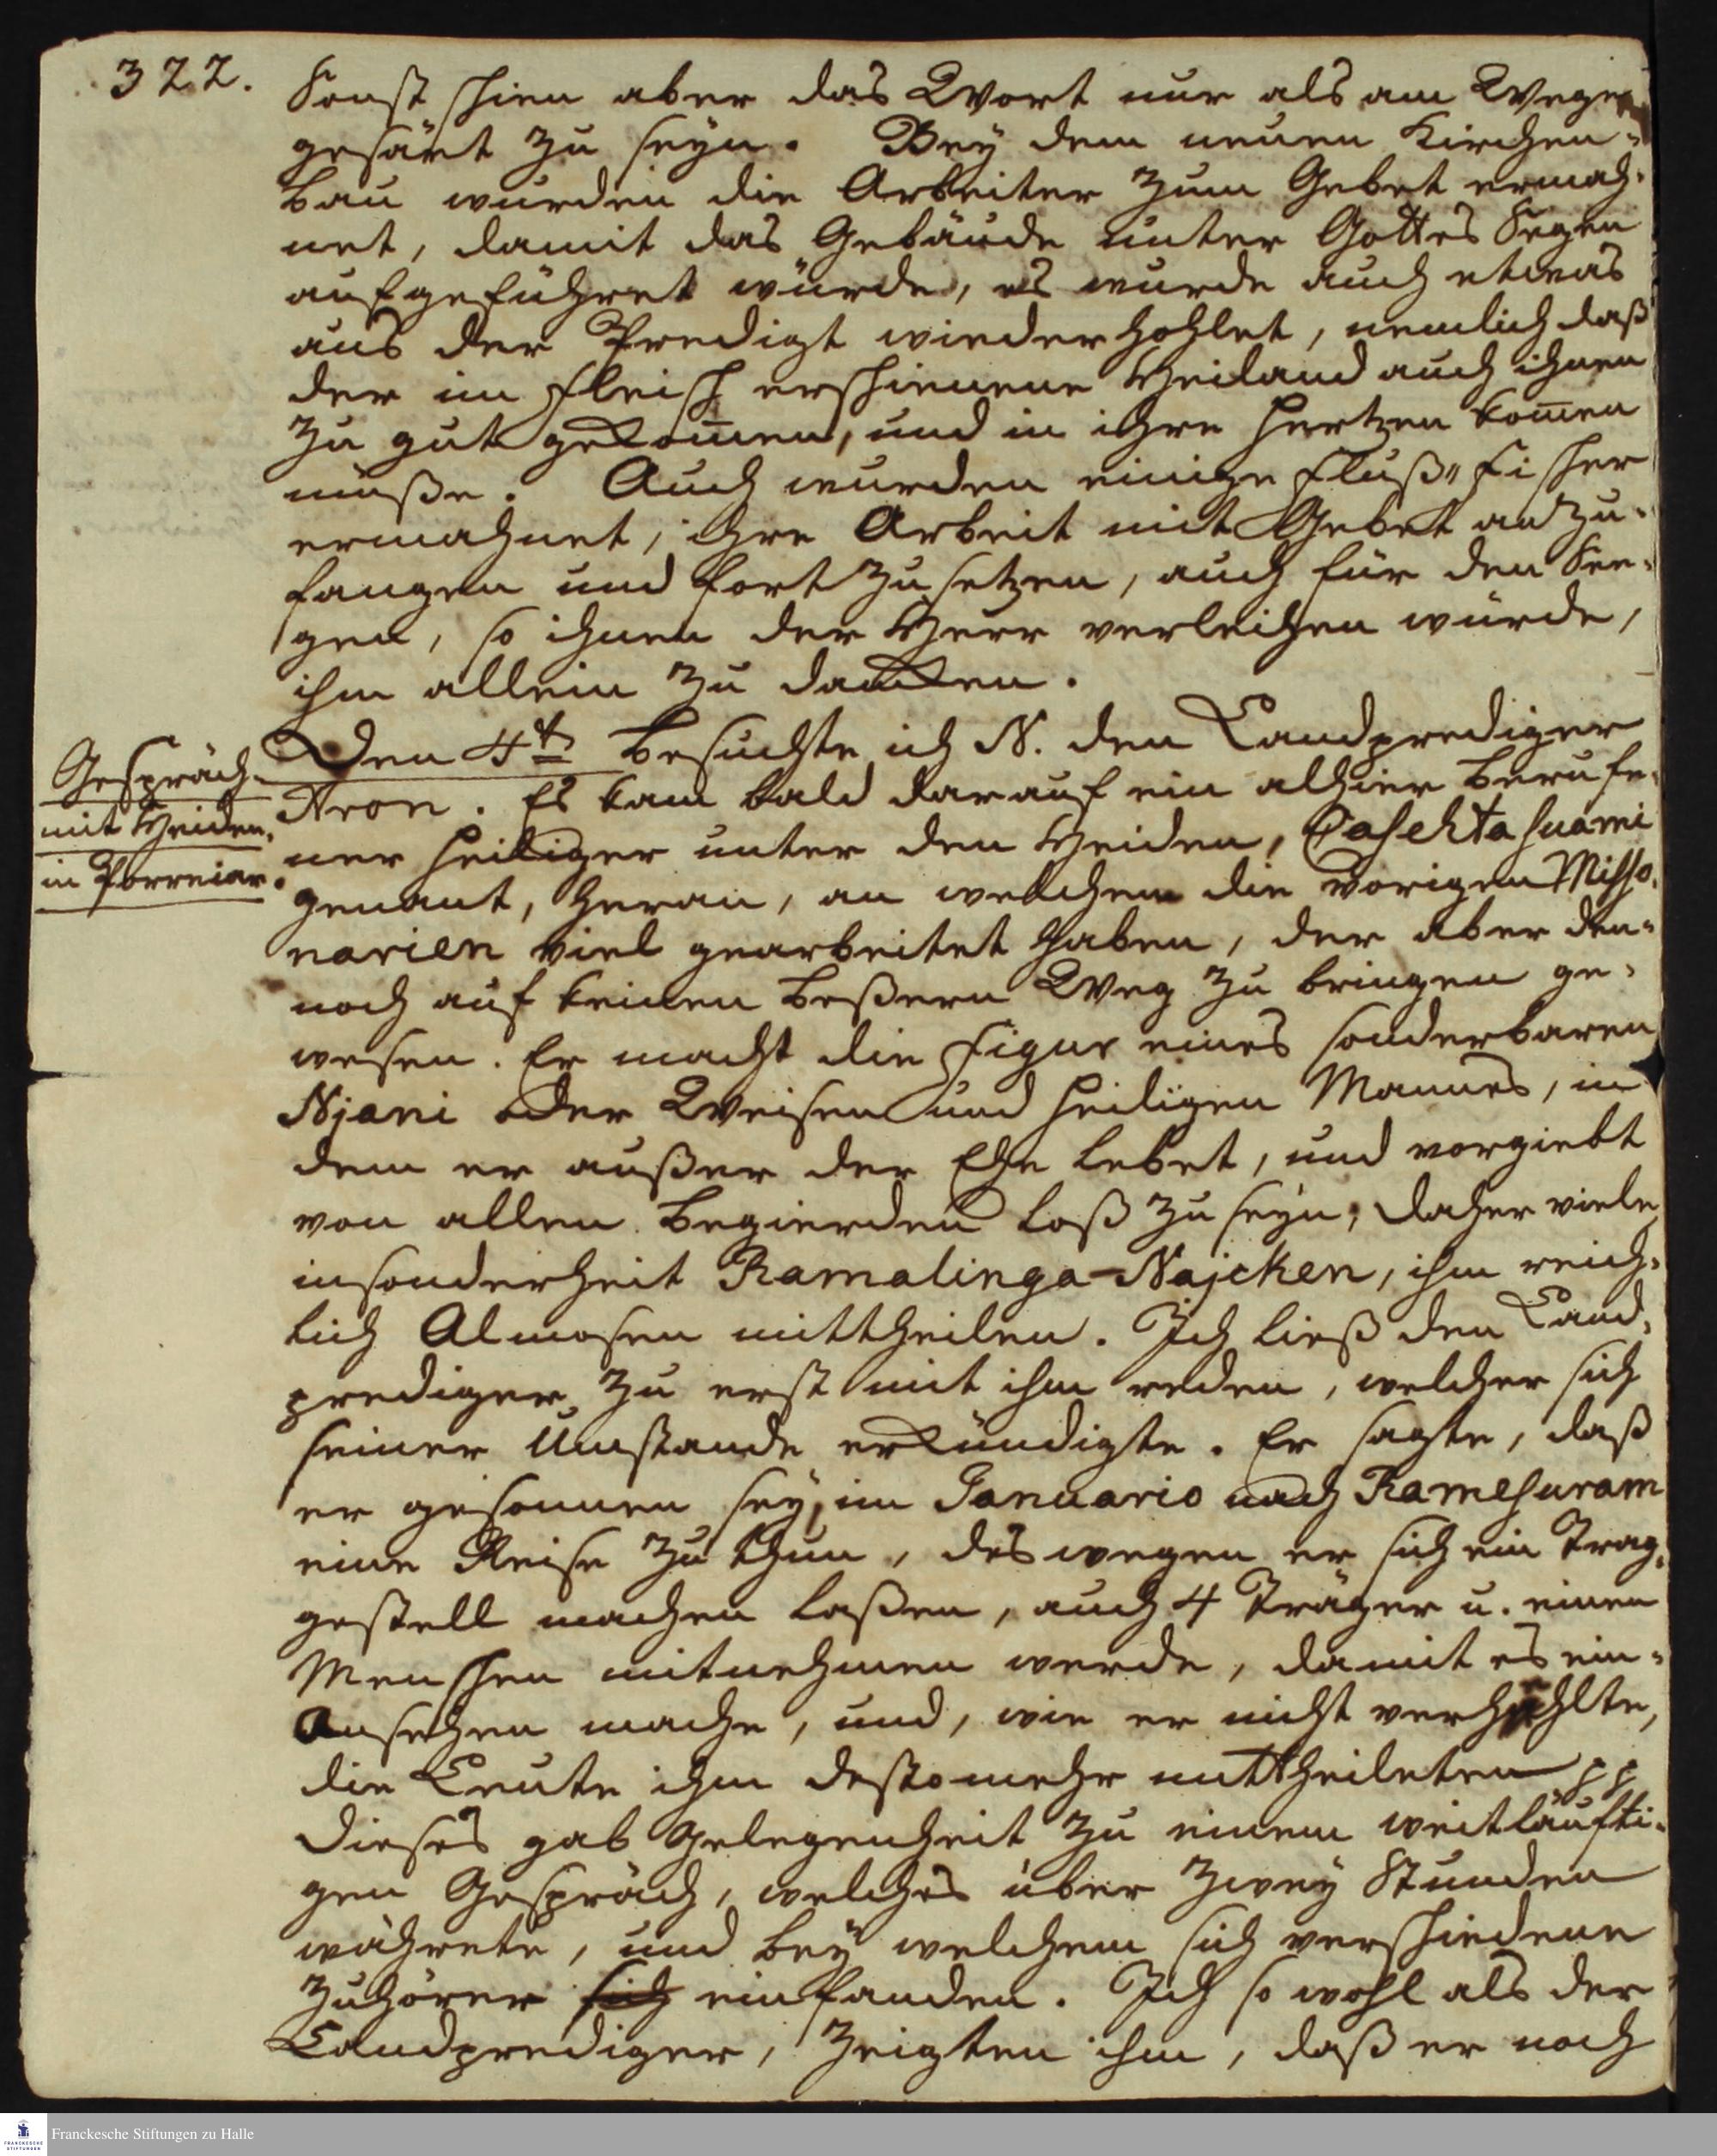 322.
Sonst schien aber das Wort nur als am Wege
gesäet zu seyn. Bey dem neuen Kirchen-
bau wurden die Arbeiter zum Gebet ermah-
net, damit das Gebäude unter Gottes Segen
aufgeführet würde, es wurde auch etwas
aus der Predigt wiederhohlet, nemlich daß
der im Fleisch erschienene Heiland auch ihnen
zu gut gekom̄en, und in ihre Hertzen kom̄en
müße. Auch wurden einige Fluß-Fischer
ermahnet, ihre Arbeit mit Gebet anzu-
fangen und fort zu setzen, auch für den See-
gen, so ihnen der Herr verleihen würde,
ihm allein zu dancken.
Gespräch
mit Heiden
in Porreiar.
Den 4t besuchte ich N. den Landprediger
Aron. Es kam bald darauf ein alhier berufe-
ner Heiliger unter den Heiden,
genant, heran, an welchem die vorigen Misso-
narien viel gearbeitet haben, der aber den-
noch auf keinen beßern Weg zu bringen ge-
wesen. Er macht die Figur eines sonderbaren
Njani oder Weisen und heiligen Mannes, in
dem er außer der Ehe lebet, und vorgiebt
von allen Begierden loß zu seyn, daher viele
insonderheit Ramalinga-Najcken, ihm reich-
lich Almosen mittheilen. Ich ließ den Land-
prediger zu erst mit ihm reden, welcher sich
seiner Umstande erkündigte. Er sagte, daß
er gesonnen sey, im Januario nach Ramesuram
eine Reise zu thun, deswegen er sich ein Trag-
gestell machen laßen, auch 4 Träger u. einen
Menschen mitnehmen werde, damit es ein
Ansehen mache, und, wie er nicht verhehlte,
die Leute ihm destomehr mittheileten pp
Dieses gab Gelegenheit zu einem weitläufti-
gen Gespräch, welches über zwey Stunden
währete, und bey welchem sich verschiedene
Zuhörer sich einfanden. Ich so wohl als der
Landprediger, zeigten ihm, daß er noch
Franckesche Stiftungen zu Halle